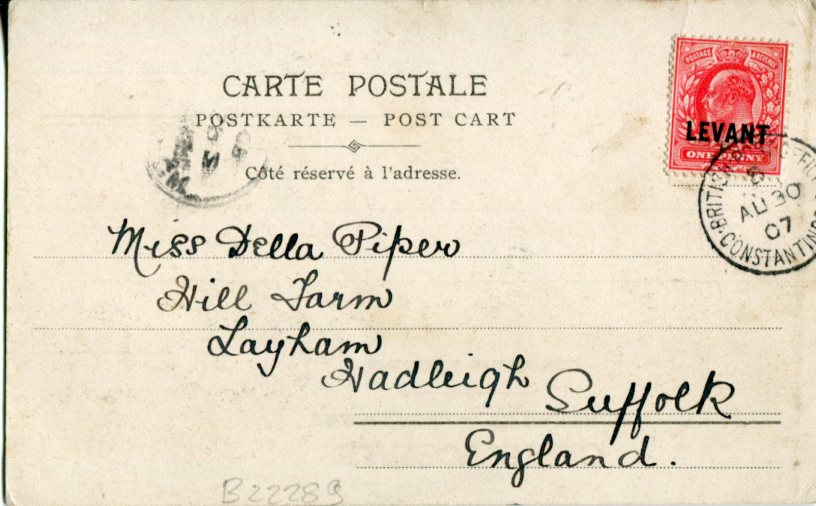 CARTE POSTALE
POSTKARTE — POST CART
Côté réservé à l'adresse.
POSTAGE & REVENUE
LEVANT
ONE PENNY
BRITISH
AU 30
07
CONSTANTINO
Miss Della Piper
Hill Farm
Layham
Hadleigh
Suffolk
England.
B22289